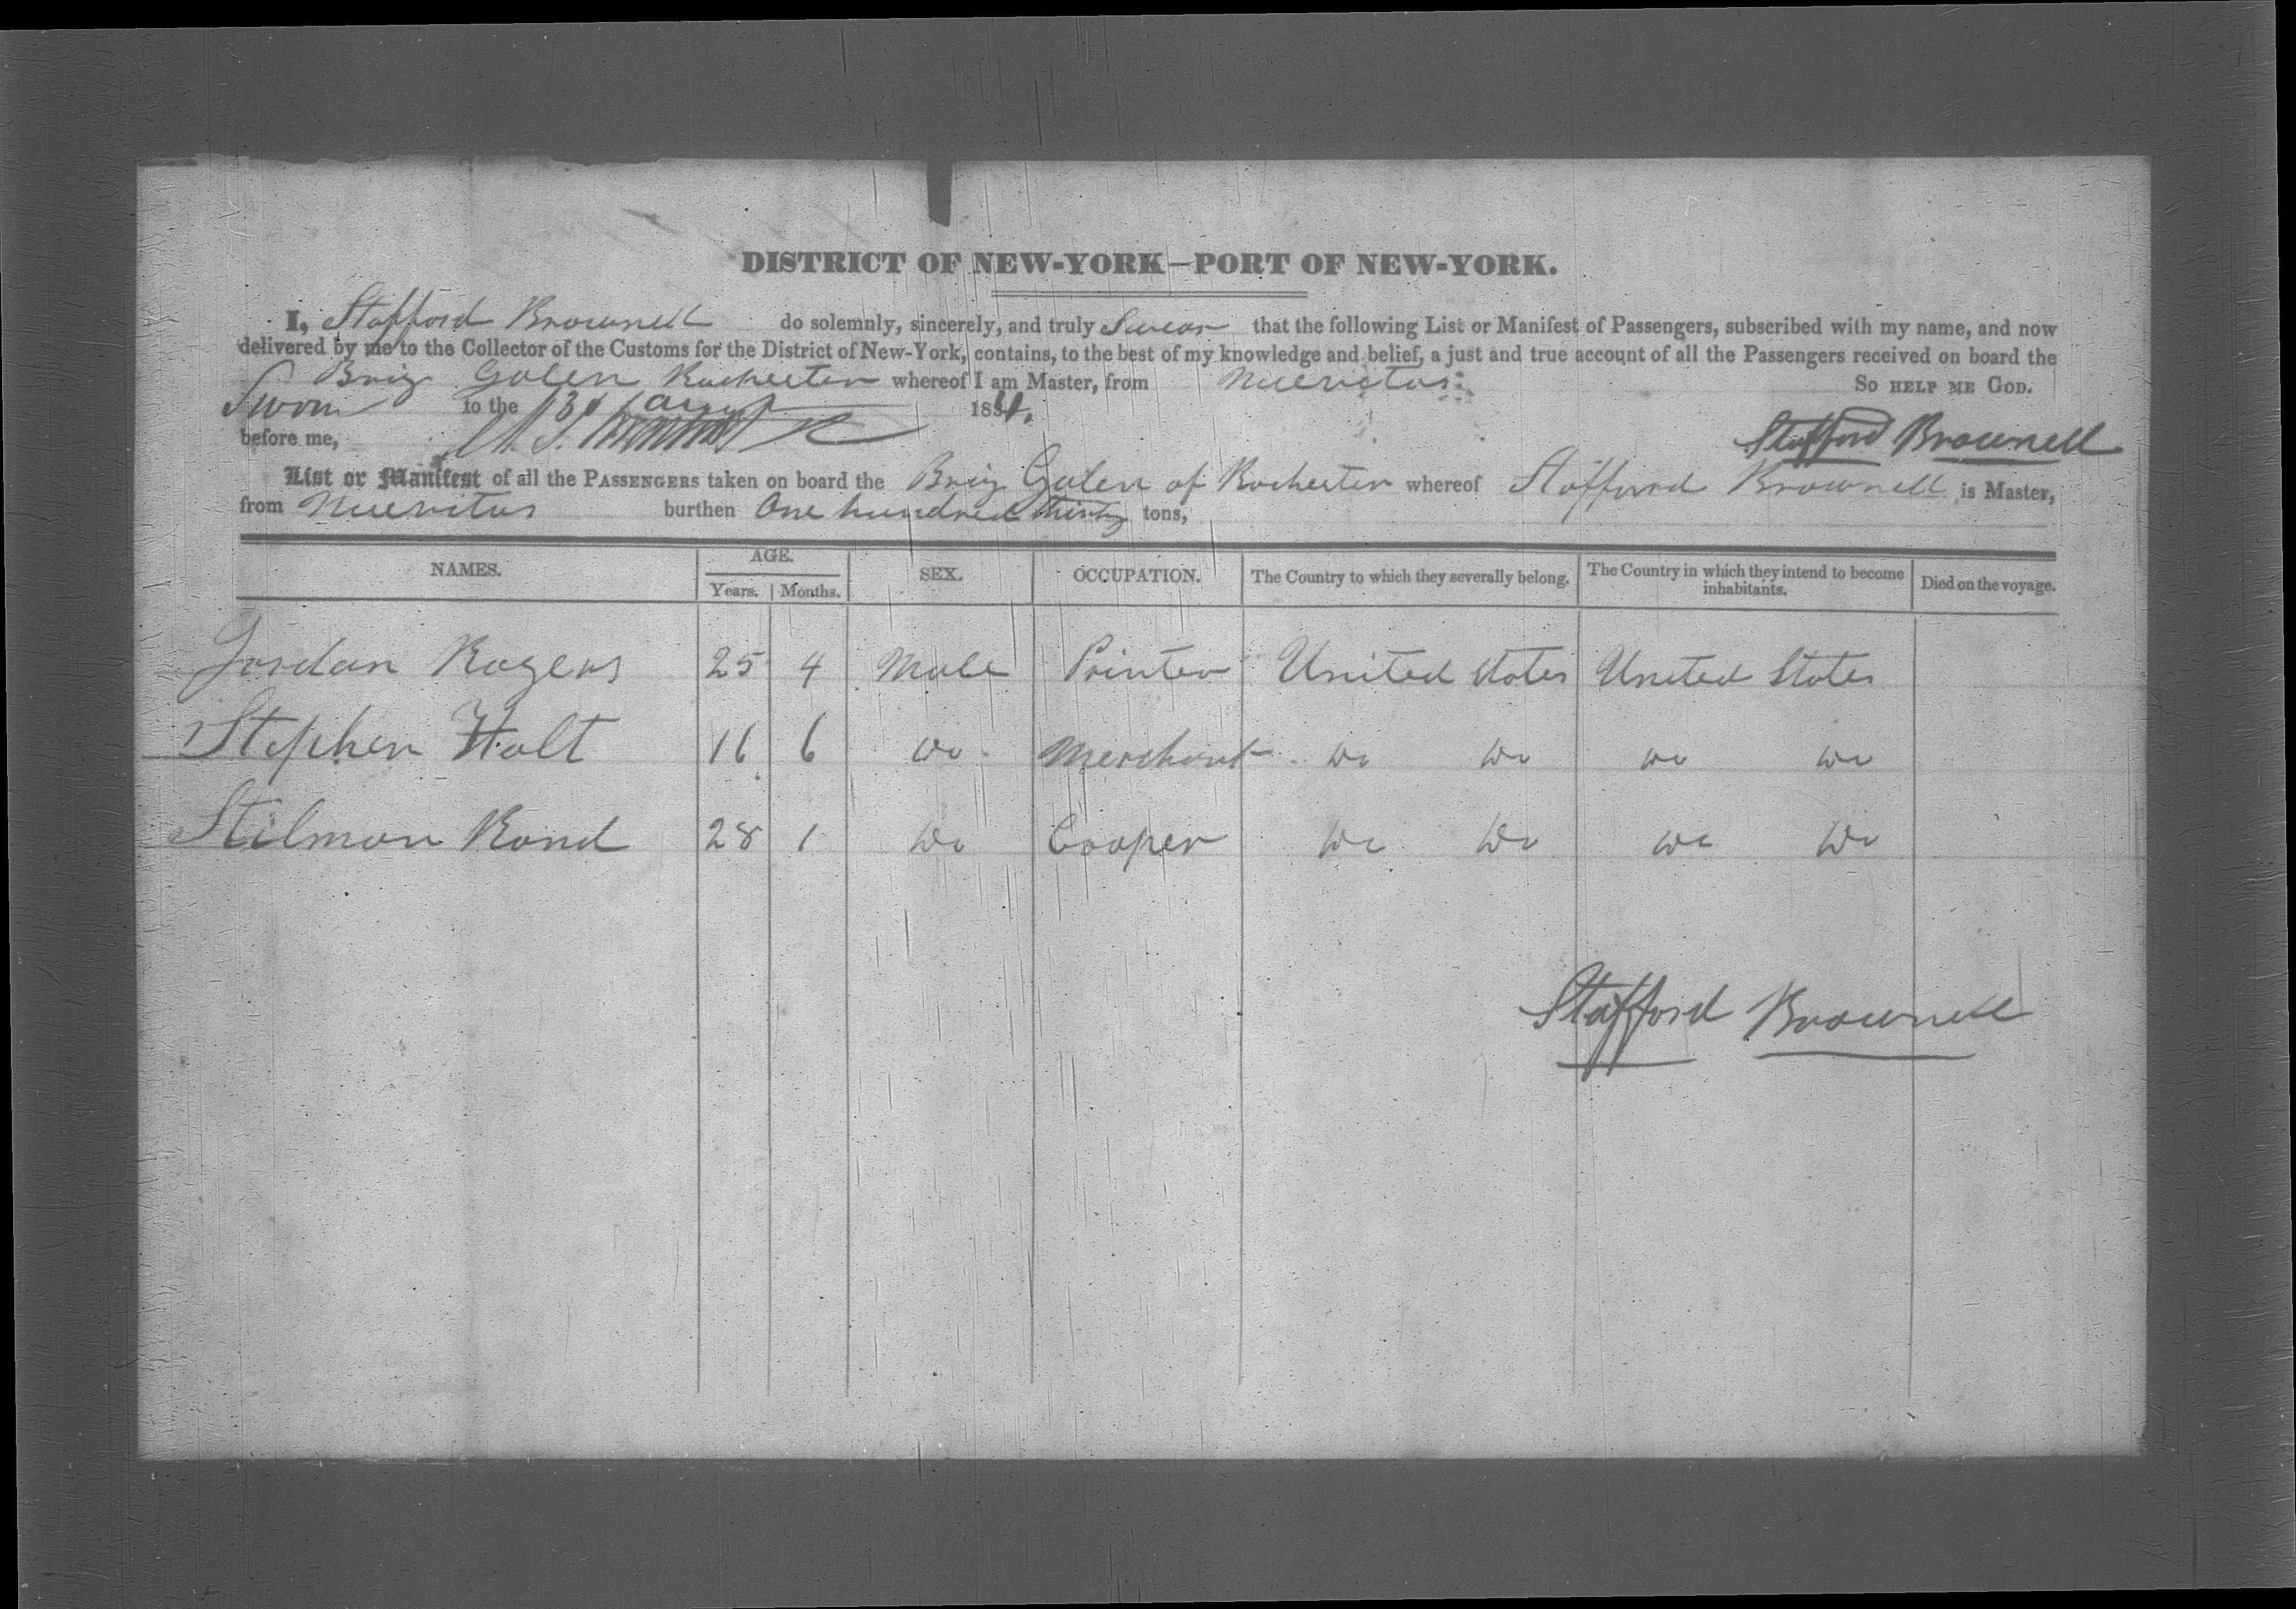 DISTRICT OF NEW-YORK—PORT OF NEW-YORK.
I, Stafford Brownell do solemnly, sincerely, and truly Swear that the following List or Manifest of Passengers, subscribed with my name, and now
delivered by me to the Collector of the Customs for the District of New-York, contains, to the best of my knowledge and belief, a just and true account of all the Passengers received on board the
Brig Galen Rochester whereof I am Master, from Nuevitas So HELP ME GOD.
Sworn to the 13 183
before me, Stafford Brownell
List or Manifest of all the PASSENGERS taken on board the Brig Galen of Rochester whereof Stafford Brownell is Master,
from Nuevitas burthen One hundred thirty tons,
NAMES. AGE. SEX. OCCUPATION. The Country to which they severally belong. The Country in which they intend to become inhabitants. Died on the voyage.
Years. Months.
Jordan Rogers 25 4 Male Printer United States United States
Stephen Holt 16 6 Do Merchant Do Do Do Do
Stilman Bond 28 1 Do Cooper Do Do Do Do
Stafford Brownell